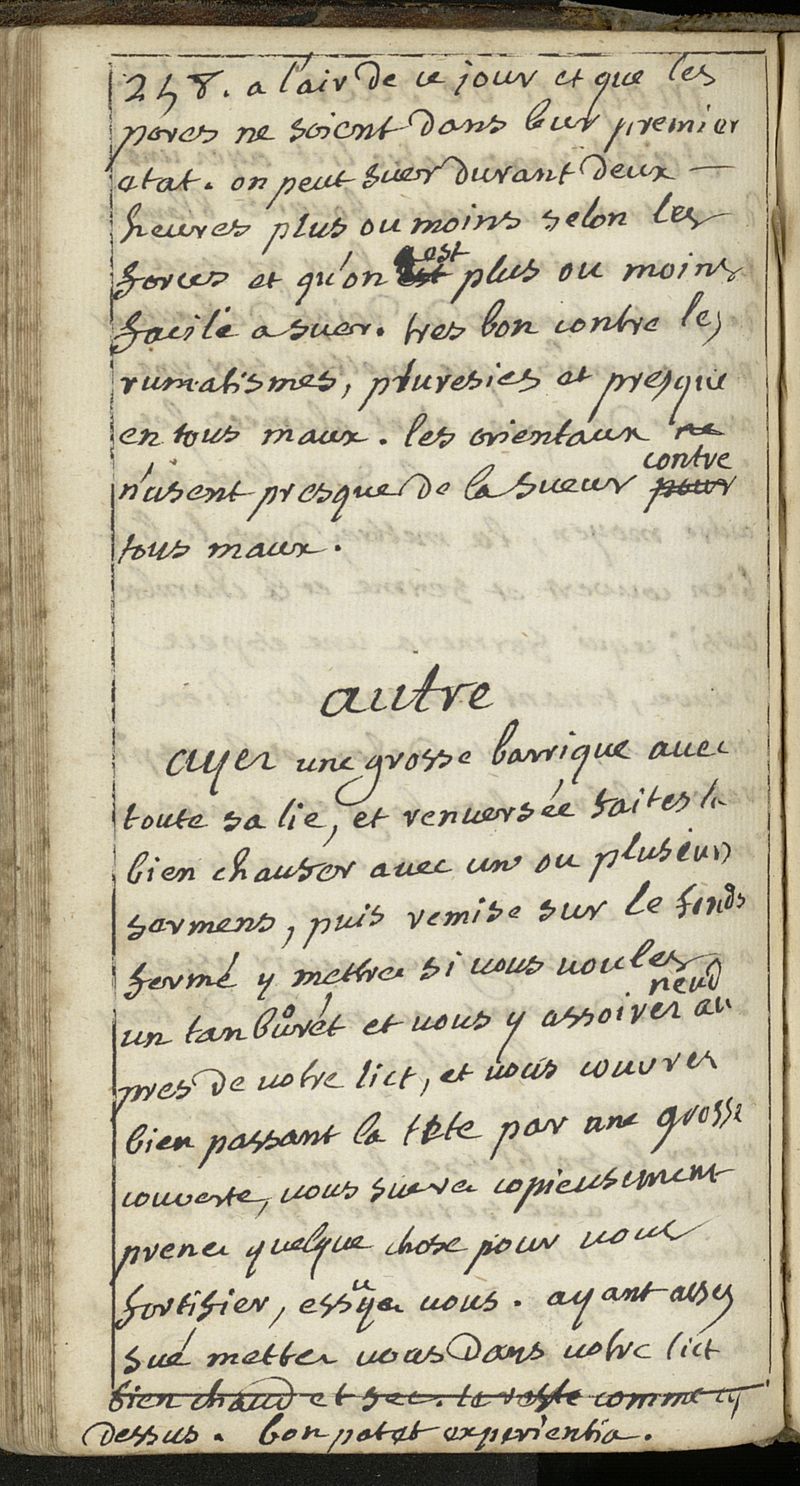 258. a l'air de ce jour et que les
pores ne soient dans leur premier
etat. on peut suer durant deux —
heures plus ou moins selon les
forces et qu'on est plus ou moins
facile a suer. tres bon contre les
rumatismes, pluresies et presque
en tous maux. les orientaux ne
n'usent presque de la sueur pour contre
tous maux.
autre
ayez une grosse barrique avec
toute sa lie, et renversée faites la
bien chaufer avec un ou plusieurs
sermens, puis remise sur le fonds
fermé y mettez si vous voules
un tanbouret et vous y assoirez neud au
pres de votre lict, et vous couvrez
bien passant la tete par une grosse
couverte, vous suerez copieusement
prenez quelque chose pour vous
fortifier, essuyez vous. ayant assez
sué mettez vous dans votre lict
bien chaud et sec. le reste comme cy
dessus. bon patet experientia.